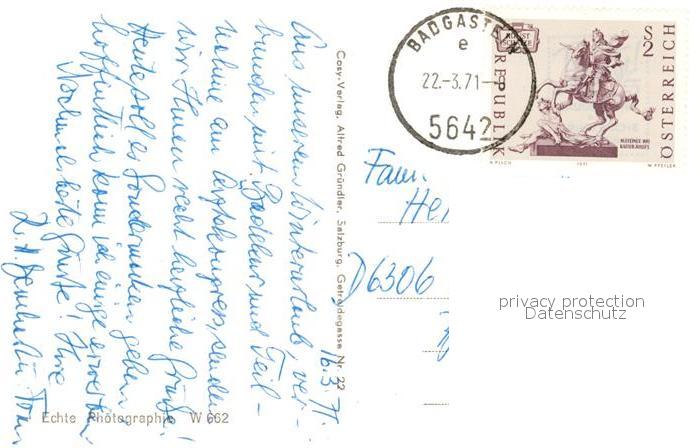 16.3.71.
Aus unserem Winterurlaub, ver-
bunden mit Badekur und Teil-
nahme am senden
wir Ihnen recht herzliche Grüße!
Heute soll es Sondermarken geben,
hoffentlich kann ich einige erwerben.
Nochmals beste Grüße! Ihre
Cosy-Verlag, Alfred Gründler, Salzburg, Getreidegasse Nr. 22
Echte Photographie W 662
BADGASTEIN
e
22.-3.71-8
5642
KUNST
SCHÄTZE
S
2
REPUBLIK
ÖSTERREICH
MATTHIAS
KAISER JOSEFS
A. PILCH
1971
W. PFEILER
Fam.
He
D6306
privacy protection
Datenschutz